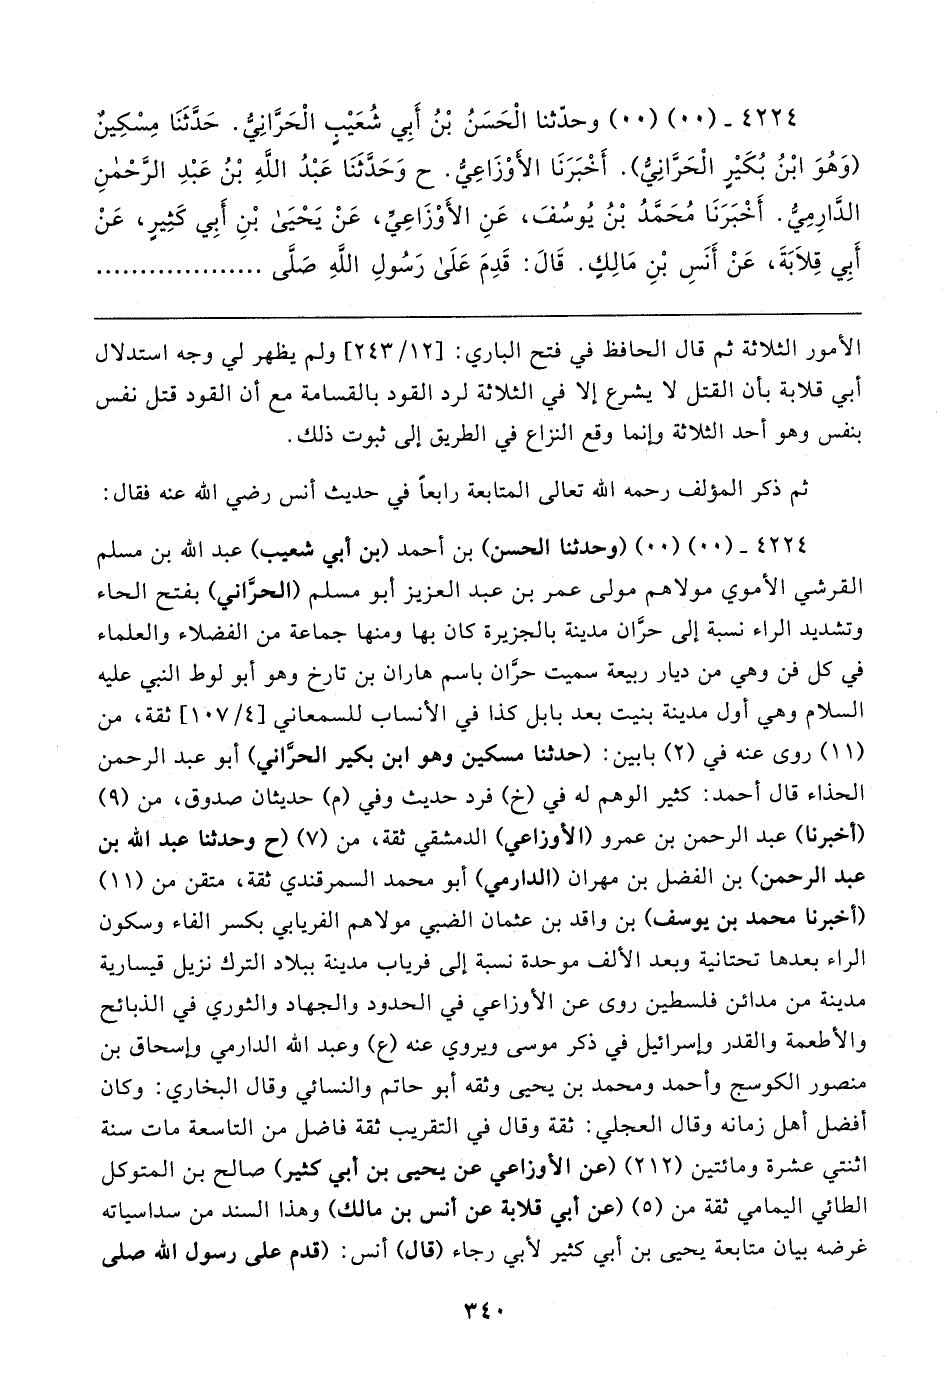 ٤٢٢٤ ـ (٠٠) (٠٠) وحدّثنا الْحَسَنُ بْنُ أَبِي شُعَيْبٍ الْحَرَّانِيُّ. حَدَّثَنَا مِسْكِينٌ
(وَهُوَ ابْنُ بُكَيْرٍ الْحَرَّانِيُّ). أَخْبَرَنَا الأَوْزَاعِيُّ. ح وَحَدَّثَنَا عَبْدُ اللَّهِ بْنُ عَبْدِ الرَّحْمٰنِ
الدَّارِمِيُّ. أَخْبَرَنَا مُحَمَّدُ بْنُ يُوسُفَ، عَنِ الأَوْزَاعِيِّ، عَنْ يَحْيَىٰ بْنِ أَبِي كَثِيرٍ، عَنْ
أَبِي قِلَابَةَ، عَنْ أَنَسِ بْنِ مَالِكٍ. قَالَ: قَدِمَ عَلَىٰ رَسُولِ اللَّهِ صَلَّى ...................
الأمور الثلاثة ثم قال الحافظ في فتح الباري: [١٢/ ٢٤٣] ولم يظهر لي وجه استدلال
أبي قلابة بأن القتل لا يشرع إلا في الثلاثة لرد القود بالقسامة مع أن القود قتل نفس
بنفس وهو أحد الثلاثة وإنما وقع النزاع في الطريق إلى ثبوت ذلك.
ثم ذكر المؤلف رحمه الله تعالى المتابعة رابعاً في حديث أنس رضي الله عنه فقال:
٤٢٢٤ ـ (٠٠) (٠٠) (وحدثنا الحسن) بن أحمد (بن أبي شعيب) عبد الله بن مسلم
القرشي الأموي مولاهم مولى عمر بن عبد العزيز أبو مسلم (الحرَّاني) بفتح الحاء
وتشديد الراء نسبة إلى حرَّان مدينة بالجزيرة كان بها ومنها جماعة من الفضلاء والعلماء
في كل فن وهي من ديار ربيعة سميت حرَّان باسم هاران بن تارخ وهو أبو لوط النبي عليه
السلام وهي أول مدينة بنيت بعد بابل كذا في الأنساب للسمعاني [٤/ ١٠٧] ثقة، من
(١١) روى عنه في (٢) بابين: (حدثنا مسكين وهو ابن بكير الحرَّاني) أبو عبد الرحمن
الحذاء قال أحمد: كثير الوهم له في (خ) فرد حديث وفي (م) حديثان صدوق، من (٩)
(أخبرنا) عبد الرحمن بن عمرو (الأوزاعي) الدمشقي ثقة، من (٧) (ح وحدثنا عبد الله بن
عبد الرحمن) بن الفضل بن مهران (الدارمي) أبو محمد السمرقندي ثقة، متقن من (١١)
(أخبرنا محمد بن يوسف) بن واقد بن عثمان الضبي مولاهم الفريابي بكسر الفاء وسكون
الراء بعدها تحتانية وبعد الألف موحدة نسبة إلى فرياب مدينة ببلاد الترك نزيل قيسارية
مدينة من مدائن فلسطين روى عن الأوزاعي في الحدود والجهاد والثوري في الذبائح
والأطعمة والقدر وإسرائيل في ذكر موسى ويروي عنه (ع) وعبد الله الدارمي وإسحاق بن
منصور الكوسج وأحمد ومحمد بن يحيى وثقه أبو حاتم والنسائي وقال البخاري: وكان
أفضل أهل زمانه وقال العجلي: ثقة وقال في التقريب ثقة فاضل من التاسعة مات سنة
اثنتي عشرة ومائتين (٢١٢) (عن الأوزاعي عن يحيى بن أبي كثير) صالح بن المتوكل
الطائي اليمامي ثقة من (٥) (عن أبي قلابة عن أنس بن مالك) وهذا السند من سداسياته
غرضه بيان متابعة يحيى بن أبي كثير لأبي رجاء (قال) أنس: (قدم على رسول الله صلى
٣٤٠